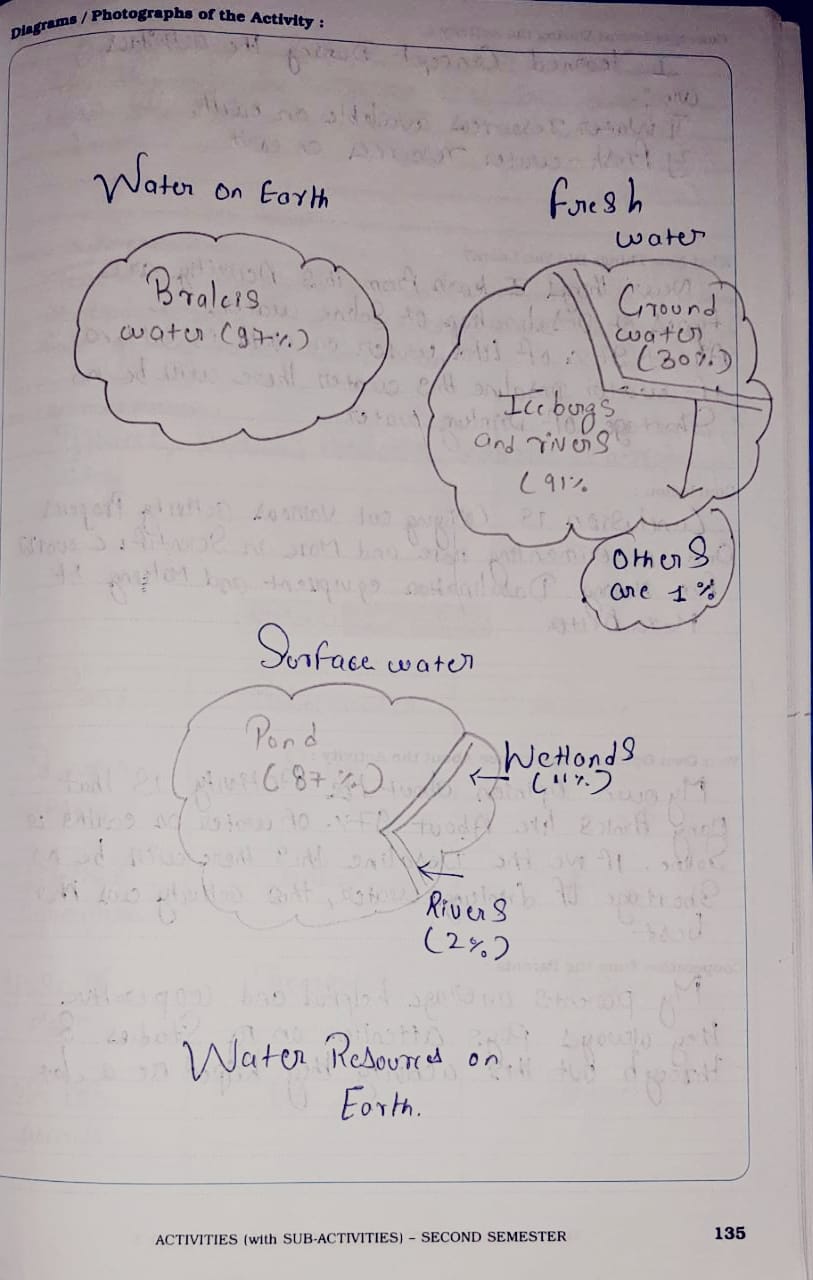 Diagrams / Photographs of the Activity :
Water on Earth
Bralcis
water (97%)
fresh
water
Ground
water
(30%)
Icebergs
and rivers
(91%
Others
are 1%
Surface water
Pond
(87%)
Wetlands
(11%)
Rivers
(2%)
Water Resources on
Earth.
ACTIVITIES (with SUB-ACTIVITIES) – SECOND SEMESTER
135